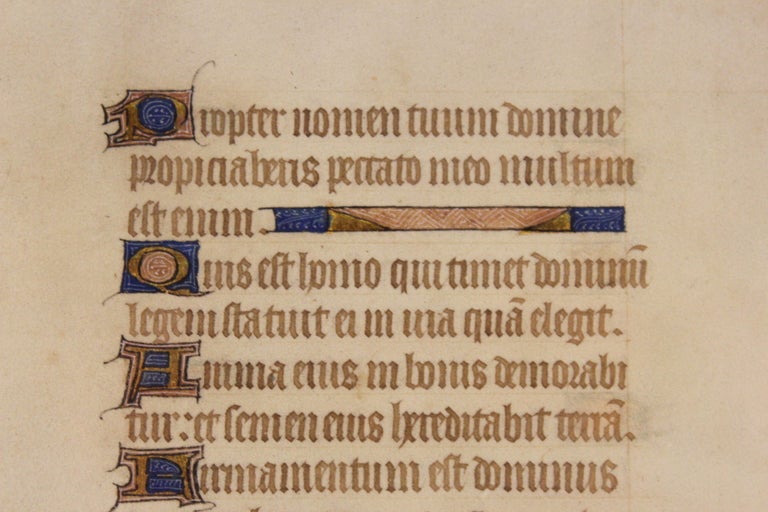 Propter nomen tuum domine
propiciaberis peccato meo multum
est enim.
Quis est homo qui timet dominū
legem statuit ei in uia quā elegit.
Anima eius in bonis demorabi
tur: et semen eius hereditabit terrā.
Firmamentum est dominus